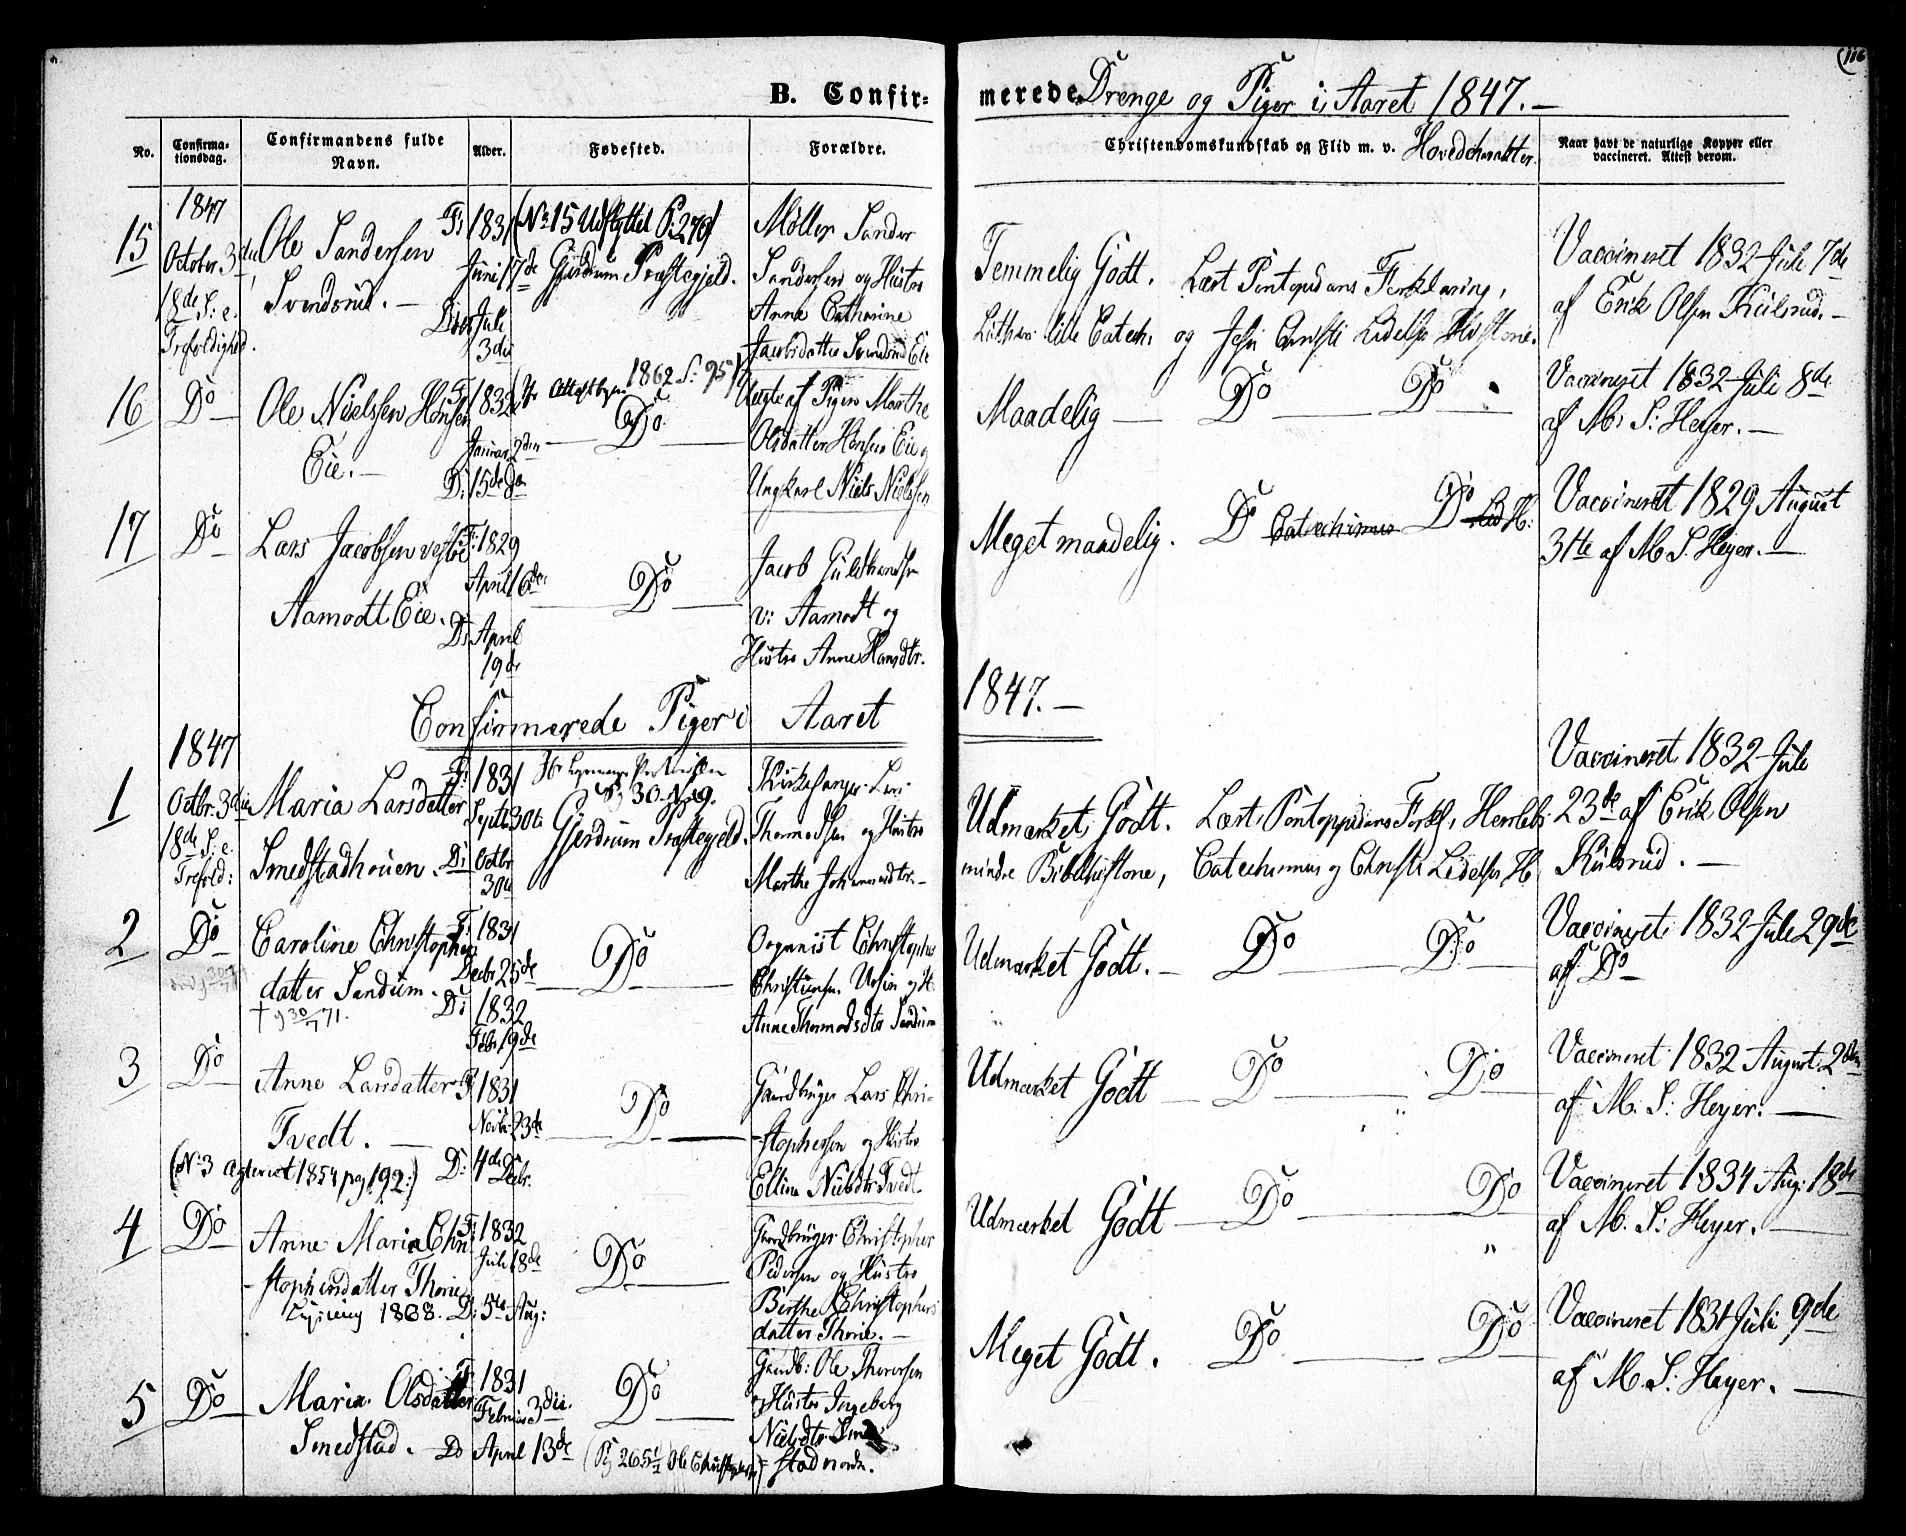 116
B. Confir-
merede Drenge og Piger i Aaret 1847.
No.
Confirma-
tionsdag.
Confirmandens fulde
Navn.
Alder.
Fødested.
Forældre.
Christendomskundskab og Flid m. v. Hovedcharakter.
Naar havt de naturlige Kopper eller
vaccineret. Attest derom.
1847
15
October 3die
18de S: e.
Trefoldighed.
Ole Sandersen
Svendsrud.
F: 1831
Juni 17de
D: Jule
3die
(No 15 Udflyttet P: 270)
Gjerdrum Præstegjeld.
Møller Sander
Sandersen og Hustro
Anne Cathrine
Jacobsdatter Svendsrud Eie
Temmelig Godt. Læst Pontopidans Forklaring,
Luthers lille Catech. og Jesu Christi Lidelses Historie.
Vaccineret 1832 Juli 7de
af Erik Olsen Kulsrud.
16
Do
Ole Nielsen Hønsen
Eie.
F: 1832
Januar 2den
D: 15de Do
1862 S: 95
Do
Uægte af Pigen Marthe
Olsdatter Hønsen Eie og
Ungkarl Niels Nielsen
Maadelig Do Do
Vaccineret 1832 Juli 8de
af M: S: Heyer.
17
Do
Lars Jacobsen
Aamodt Eie.
F: 1829
April 16de
D: April
19de
Do
Jacob Guldbrandsen
v: Aamodt og
Hustro Anne Hansdtr.
Meget maadelig. Do Catechismus Do Lid H:
Vaccineret 1829 August
31te af M. S. Heyer.
Confirmerede Piger i Aaret
1847.
1847
1
Octbr. 3die
18de S: e.
Trefold:
Maria Larsdatter
Smedstadhouen.
F: 1831
Septbr 30te
D: Octbr
30te
Pag 30 No 19.
Gjerdrum Præstegjeld.
Kirkesanger Lars
Thormodsen og Hustro
Marthe Johannesdtr.
Udmærket Godt. Læst Pontoppidans Forkl, Herslebs
mindre Bibelhistorie, Catechismus og Christi Lidelses H
Vaccineret 1832 Jule
23de af Erik Olsen
Kulsrud.
2
Do
Caroline Christophers
datter Sandum.
† 30/7 71.
F: 1831
Decbr 25de
D: 1832
Febr 19de
Do
Organist Christopher
Christiansen og H.
Anne Thormodsdtr Sandum
Udmærket Godt. Do Do
Vaccineret 1832 Jule 29de
af Do
3
Do
Anne Larsdatter
Tvedt.
(No 3 1854 pag 192.)
F: 1831
Novbr. 23de
D: 4de Decbr.
Do
Gaardbruger Lars Chri-
stophersen og Hustro
Elline Nielsdtr Tvedt.
Udmærket Godt Do Do
Vaccineret 1832 August 2den
af M. S: Heyer.
4
Do
Anne Maria Chri
-stophersdatter Thorie
1868.
F: 1832
Juli 18de
D: 5te Aug:
Do
Gaardbruger Christopher
Pedersen og Hustro
Birthe Christophers
datter Thorie.
Udmærket Godt Do Do
Vaccineret 1834 Aug: 18de
af M. S: Heyer.
5
Do
Maria Olsdatter
Smedstad.
F: 1831
Februar 3die.
Do April 13de
Do
(Pg 265 Ole Christophersen)
Gaardb: Ole Thoresen
og Hustro Ingeborg
Nielsdtr Smed
stad nordre.
Meget Godt. Do Do
Vaccineret 1831 Juli 9de
af M. S: Heyer.